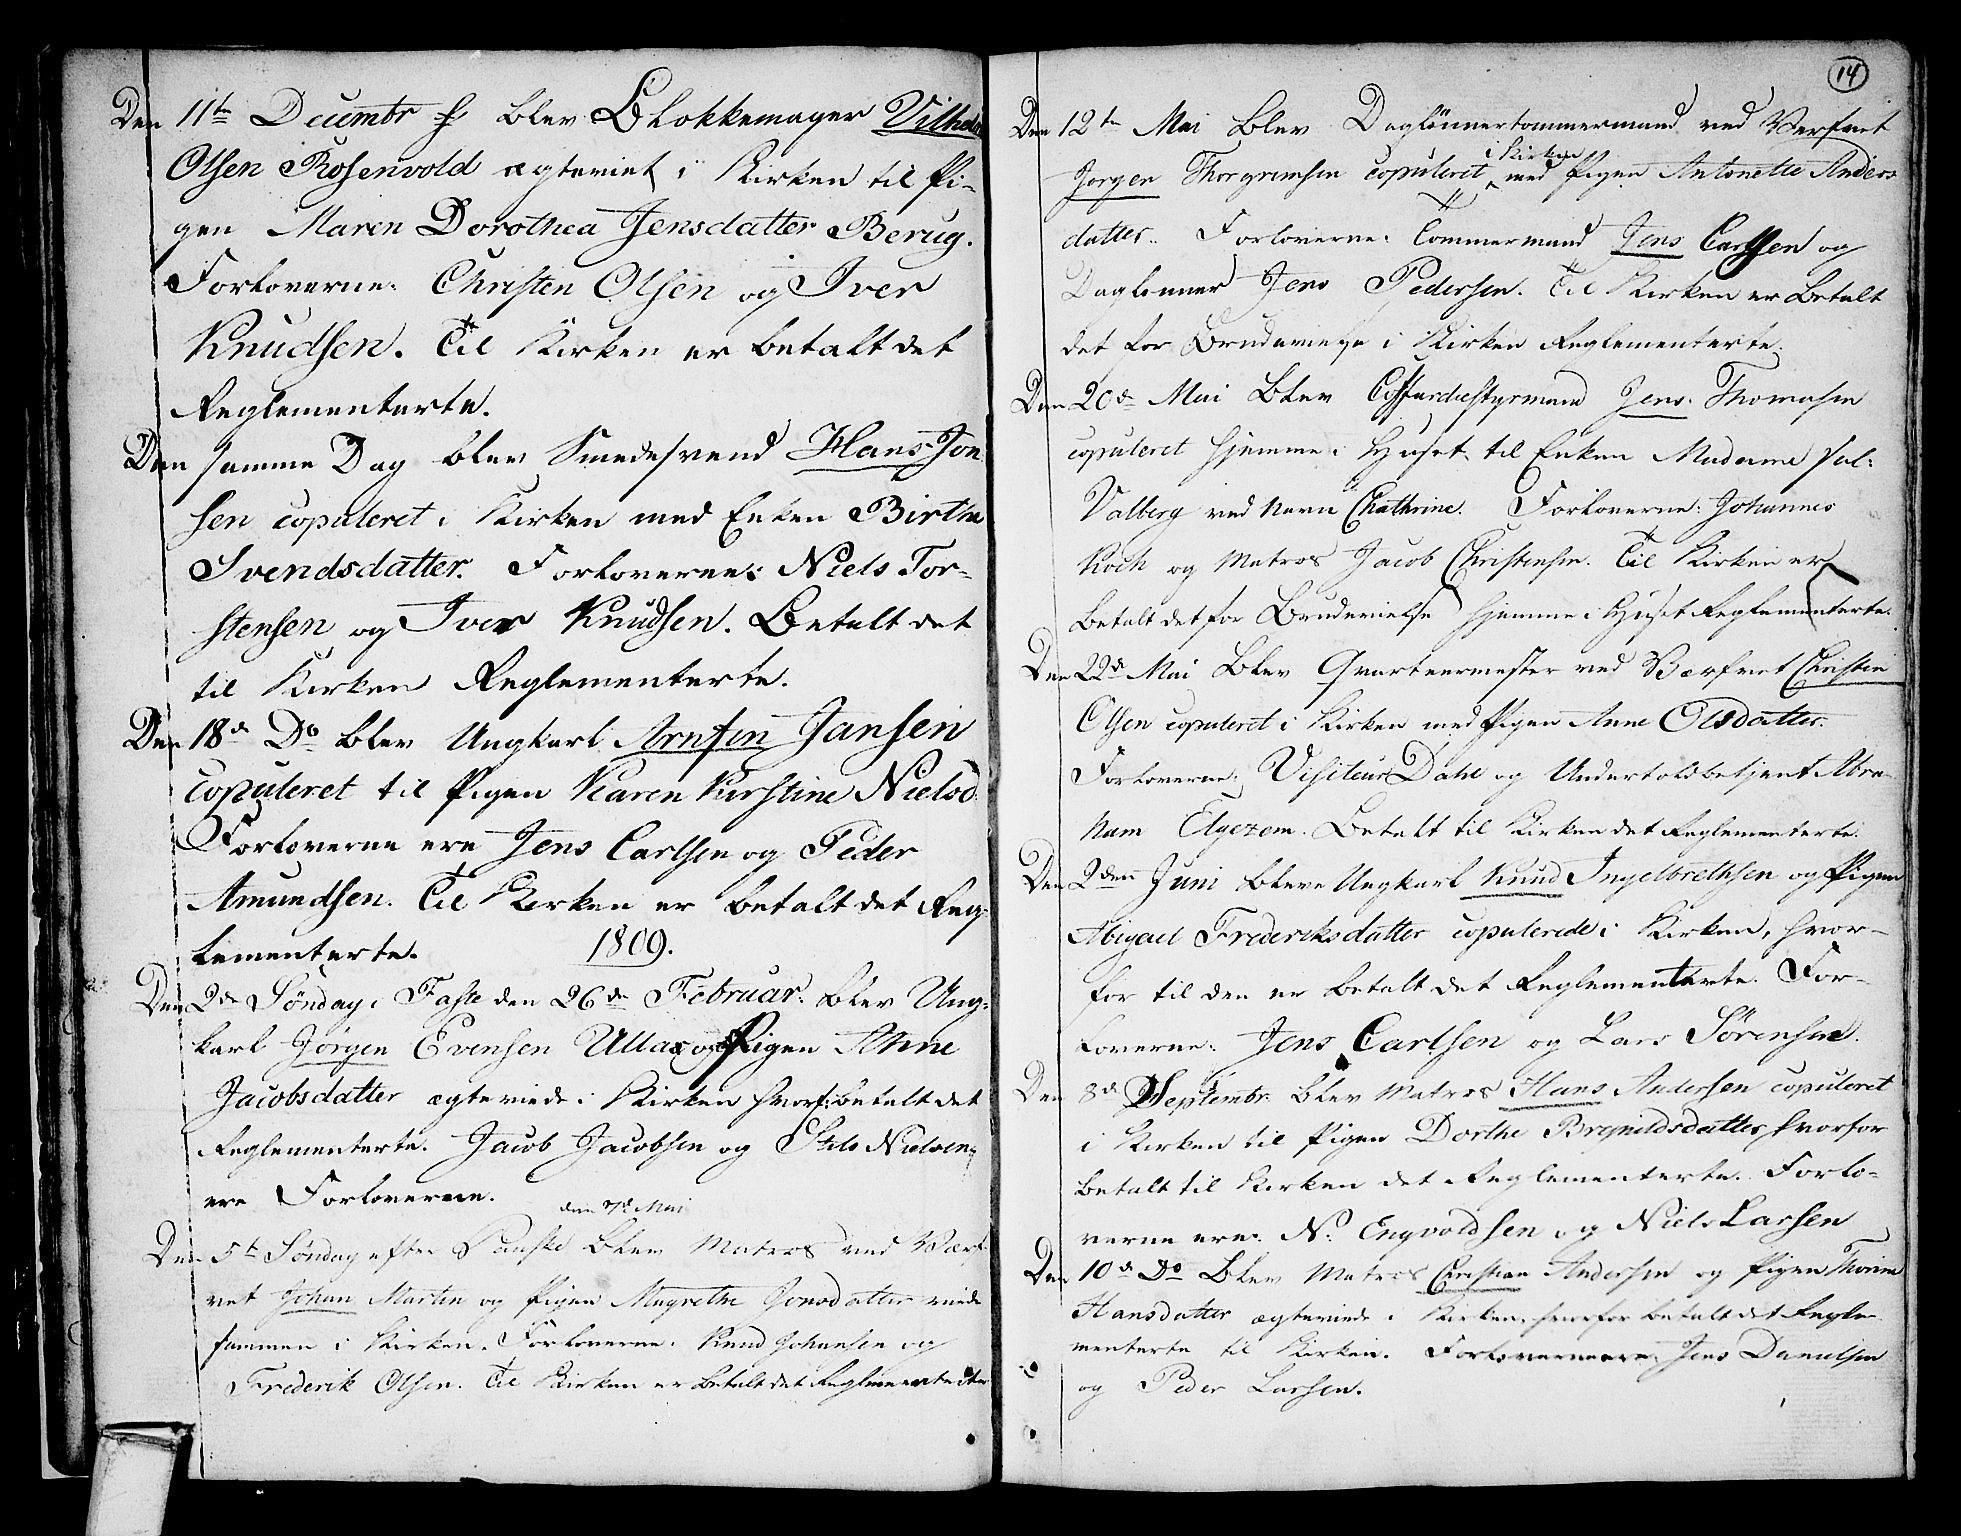 Den 11te Decembr blev Blokkemager Vilhelm
Olsen Rosenvold ægteviet i Kirken til Pi-
gen Maren Dorothea Jensdatter Berug.
Forloverne: Christen Olsen og Iver
Knudsen. Til Kirken er betalt det
Reglementerte.
Den samme Dag blev Smedesvend Hans Jon
sen copuleret i Kirken med Enken Birthe
Svendsdatter. Forloverne: Niels Tor-
stensen og Iver Knudsen. Betalt det
til Kirken Reglementerte.
Den 18de Do blev Ungkarl Arnfin Jansen
copuleret til Pigen Karen Kirstine Nielsd.
Forloverne ere Jens Carlsen og Peder
Amundsen. Til Kirken er betalt det Reg-
lementerte.
1809.
Den 2de Søndag i Faste den 26de Februar blev Ung-
karl Jørgen Evensen Ulla og Pigen Anne
Jacobsdatter ægteviede i Kirken hvorf: betalt det
Reglementerte. Jacob Jacobsen og Niels Nielsen
ere Forloverne.
den 7de Mai
Den 5te Søndag efter Paaske blev Matros ved Værf-
vet Johan Martin og Pigen Magrethe Jonsdatter viede
sammen i Kirken. Forloverne: Knud Johansen og
Frederik Olsen. Til Kirken er betalt det Reglementerte
14
Den 12te Mai blev Daglönnertömmermand ved Verfvet
Jorgen Thorgrimsen copuleret i Kirken med Pigen Antonette Anders
datter. Forloverne: Tömmermand Jens Carlsen og
Daglonner Jens Pedersen. Til Kirken er betalt
det for Brudevielse i Kirken Reglementerte.
Den 20de Mai blev Coffardiestyrmand Jens Thomasen
copuleret hjemme i Huset til Enken Madame Sal:
Valberg ved Navn Chathrine. Forloverne: Johannes
Koch og Matros Jacob Christensen. Til Kirken er
betalt det for Brudevielse hjemme i Huset Reglementerte.
Den 22de Mai blev Qvarteermester ved Værfvet Christen
Olsen copuleret i Kirken med Pigen Anne Olsdatter.
Forloverne: Visiteur Dahl og Undertoldbetjent Abra-
ham Elgezem. Betalt til Kirken det Reglementerte.
Den 2den Juni bleve Ungkarl Knud Ingelbrethsen og Pigen
Abigael Frederiksdatter copulerede i Kirken, hvor-
for til den er betalt det Reglementerte. For-
loverne: Jens Carlsen og Lars Sörensen.
Den 8de Septembr. blev Matros Hans Andersen copuleret
i Kirken til Pigen Dorthe Brynildsdatter, hvorfor
betalt til Kirken det Reglementerte. Forlo-
verne ere: N. Engvoldsen og Niels Larsen
Den 10de Do blev Matros Christian Andersen og Pigen Thorine
Hansdatter ægteviede i Kirken, hvorfor betalt det Regle-
menterte til Kirken. Forloverne ere: Jens Danielsen
og Peder Larsen.